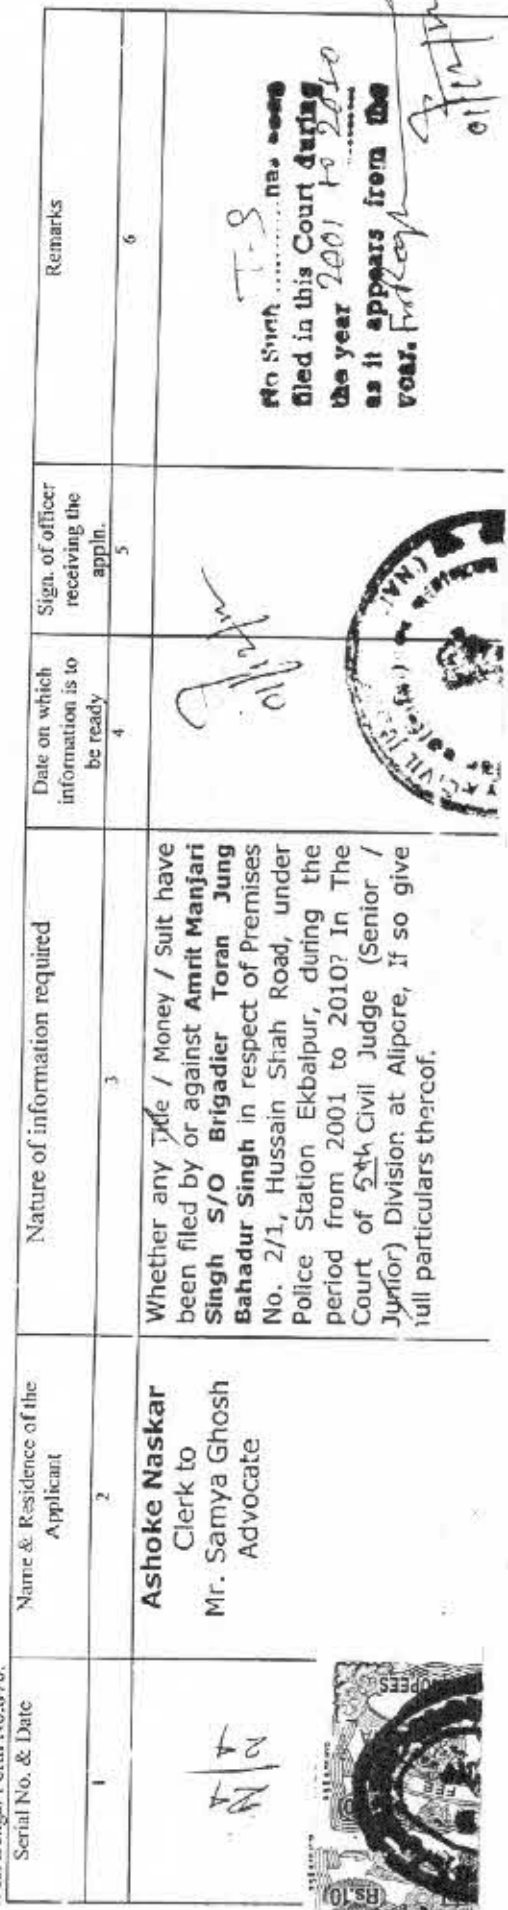 Serial No. & Date
Name & Residence of the
Applicant
Nature of information required
Date on which
information is to
be ready
Sign. of officer
receiving the
appln.
Remarks
1
2
3
4
5
6
Ashoke Naskar
Clerk to
Mr. Samya Ghosh
Advocate
Whether any Title / Money / Suit have
been filed by or against Amrit Manjari
Singh S/O Brigadier Toran Jung
Bahadur Singh in respect of Premises
No. 2/1, Hussain Shah Road, under
Police Station Ekbalpur, during the
period from 2001 to 2010? In The
Court of 5th Civil Judge (Senior /
Junior) Division at Alipore, If so give
full particulars thereof.
No Such T-S has been
filed in this Court during
the year 2001 to 2010
as it appears from the
year.
CIVIL
Rs.10
RUPEES